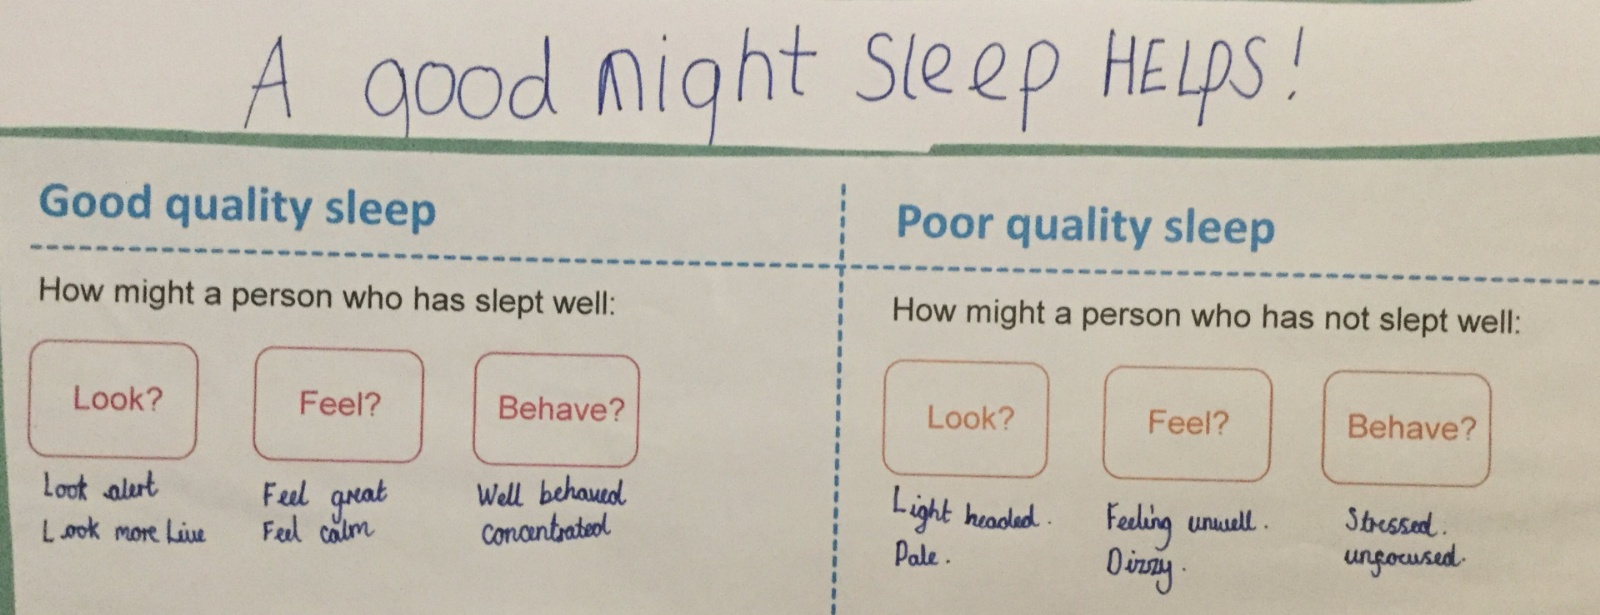 A good night sleep HELPS!
Good quality sleep
How might a person who has slept well:
Look?
Feel?
Behave?
Look alert
Look more Live
Feel great
Feel calm
Well behaved
concentrated
Poor quality sleep
How might a person who has not slept well:
Look?
Feel?
Behave?
Light headed.
Pale.
Feeling unwell.
Dizzy.
Stressed.
unfocused.